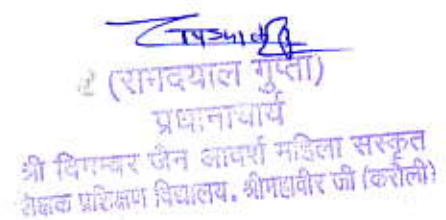 (रामदयाल गुप्ता)
प्रधानाचार्य
श्री दिगम्बर जैन आदर्श महिला संस्कृत
शिक्षक प्रशिक्षण विद्यालय, श्रीमहावीर जी (करौली)